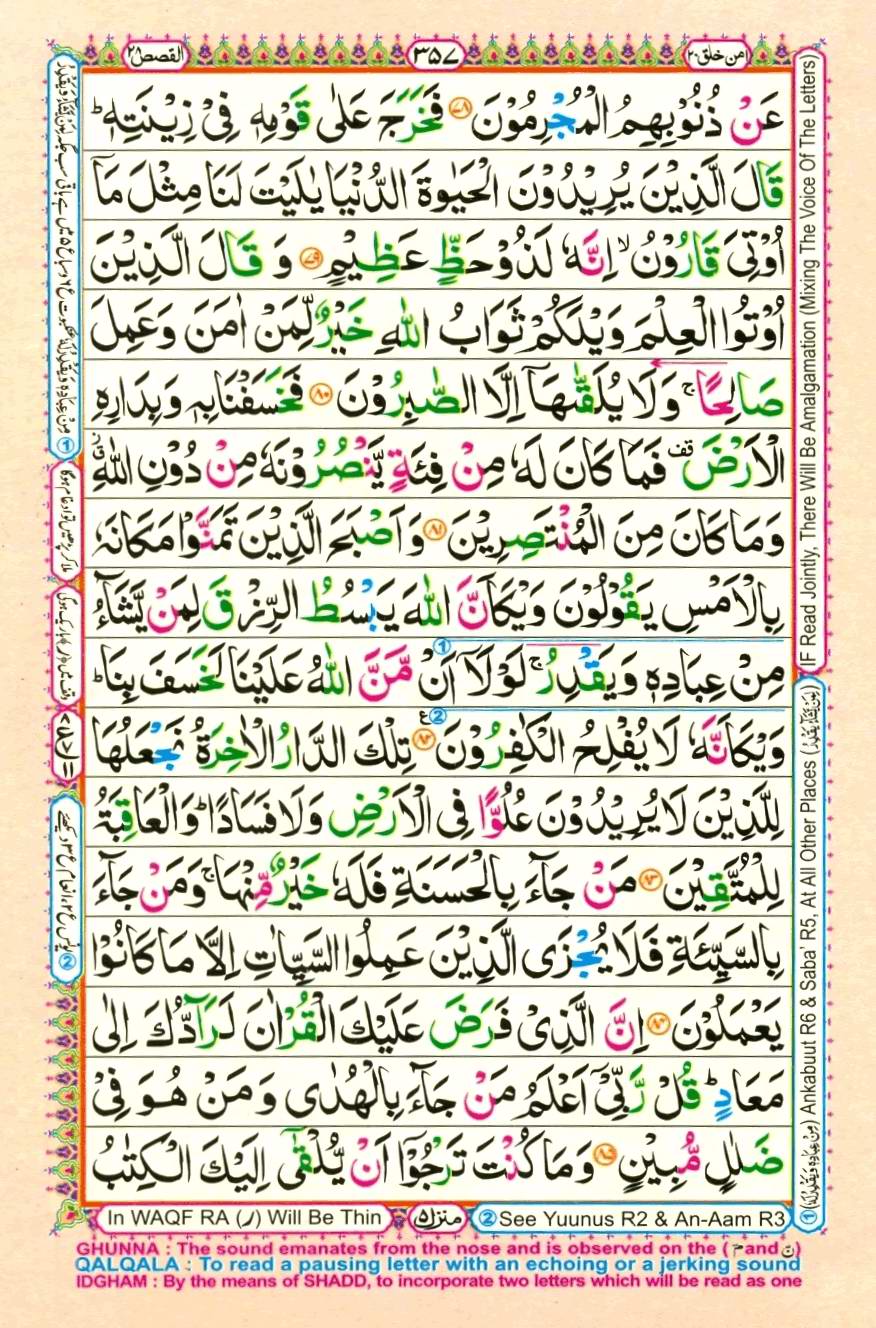 القصص ٢٨
٣٥٧
امن خلق ٢٠
عَنْ ذُنُوْبِهِمُ الْمُجْرِمُوْنَ ﴿٧٨﴾ فَخَرَجَ عَلٰى قَوْمِهٖ فِىْ زِيْنَتِهٖ ؕ
قَالَ الَّذِيْنَ يُرِيْدُوْنَ الْحَيٰوةَ الدُّنْيَا يٰلَيْتَ لَنَا مِثْلَ مَاۤ
اُوْتِىَ قَارُوْنُ ۙ اِنَّهٗ لَذُوْ حَظٍّ عَظِيْمٍ ﴿٧٩﴾ وَ قَالَ الَّذِيْنَ
اُوْتُوا الْعِلْمَ وَيْلَكُمْ ثَوَابُ اللّٰهِ خَيْرٌ لِّمَنْ اٰمَنَ وَعَمِلَ
صَالِحًا ۚ وَلَا يُلَقّٰىهَاۤ اِلَّا الصّٰبِرُوْنَ ﴿٨٠﴾ فَخَسَفْنَا بِهٖ وَبِدَارِهِ
الْاَرْضَ قف فَمَا كَانَ لَهٗ مِنْ فِئَةٍ يَّنْصُرُوْنَهٗ مِنْ دُوْنِ اللّٰهِ ق
وَمَا كَانَ مِنَ الْمُنْتَصِرِيْنَ ﴿٨١﴾ وَاَصْبَحَ الَّذِيْنَ تَمَنَّوْا مَكَانَهٗ
بِالْاَمْسِ يَقُوْلُوْنَ وَيْكَاَنَّ اللّٰهَ يَبْسُطُ الرِّزْقَ لِمَنْ يَّشَآءُ
مِنْ عِبَادِهٖ وَيَقْدِرُ ۚ لَوْلَاۤ اَنْ مَّنَّ اللّٰهُ عَلَيْنَا لَخَسَفَ بِنَا ؕ
وَيْكَاَنَّهٗ لَا يُفْلِحُ الْكٰفِرُوْنَ ﴿٨٢﴾ ع تِلْكَ الدَّارُ الْاٰخِرَةُ نَجْعَلُهَا
لِلَّذِيْنَ لَا يُرِيْدُوْنَ عُلُوًّا فِى الْاَرْضِ وَلَا فَسَادًا ؕ وَالْعَاقِبَةُ
لِلْمُتَّقِيْنَ ﴿٨٣﴾ مَنْ جَآءَ بِالْحَسَنَةِ فَلَهٗ خَيْرٌ مِّنْهَا ۚ وَمَنْ جَآءَ
بِالسَّيِّئَةِ فَلَا يُجْزَى الَّذِيْنَ عَمِلُوا السَّيِّاٰتِ اِلَّا مَا كَانُوْا
يَعْمَلُوْنَ ﴿٨٤﴾ اِنَّ الَّذِىْ فَرَضَ عَلَيْكَ الْقُرْاٰنَ لَرَآدُّكَ اِلٰى
مَعَادٍ ؕ قُلْ رَّبِّىْۤ اَعْلَمُ مَنْ جَآءَ بِالْهُدٰى وَمَنْ هُوَ فِىْ
ضَلٰلٍ مُّبِيْنٍ ﴿٨٥﴾ وَمَا كُنْتَ تَرْجُوْۤا اَنْ يُّلْقٰٓى اِلَيْكَ الْكِتٰبُ
IF Read Jointly, There Will Be Amalgamation (Mixing The Voice Of The Letters)
① (مِنْ عِبَادِهٖ وَيَقْدِرُ لَهٗ) Ankabuut R6 & Saba' R5, At All Other Places (لِمَنْ يَّشَآءُ وَيَقْدِرُ)
ملا کر پڑھیں تو ادغام ہوگا
وقف میں (ر) باریک ہوگی
In WAQF RA (ر) Will Be Thin
منزل ٥
② See Yuunus R2 & An-Aam R3
GHUNNA : The sound emanates from the nose and is observed on the ( مّ and نّ )
QALQALA : To read a pausing letter with an echoing or a jerking sound
IDGHAM : By the means of SHADD, to incorporate two letters which will be read as one